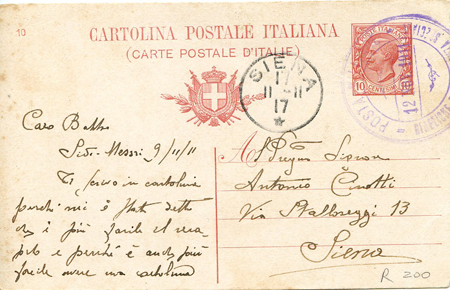 10
CARTOLINA POSTALE ITALIANA
(CARTE POSTALE D'ITALIE)
POSTE ITALIANE
10 CENTESIMI 10
SIENA
17
11-11
17
12
POST
Caro Babbo
Sidi-Messri 9/11/11
Ti scrivo in cartolina
perché mi è stato detto
che è più facile il reca-
pito e perché è anche più
facile avere una cartolina
A
Antonio
Via Stalloreggi 13
Siena
R 200